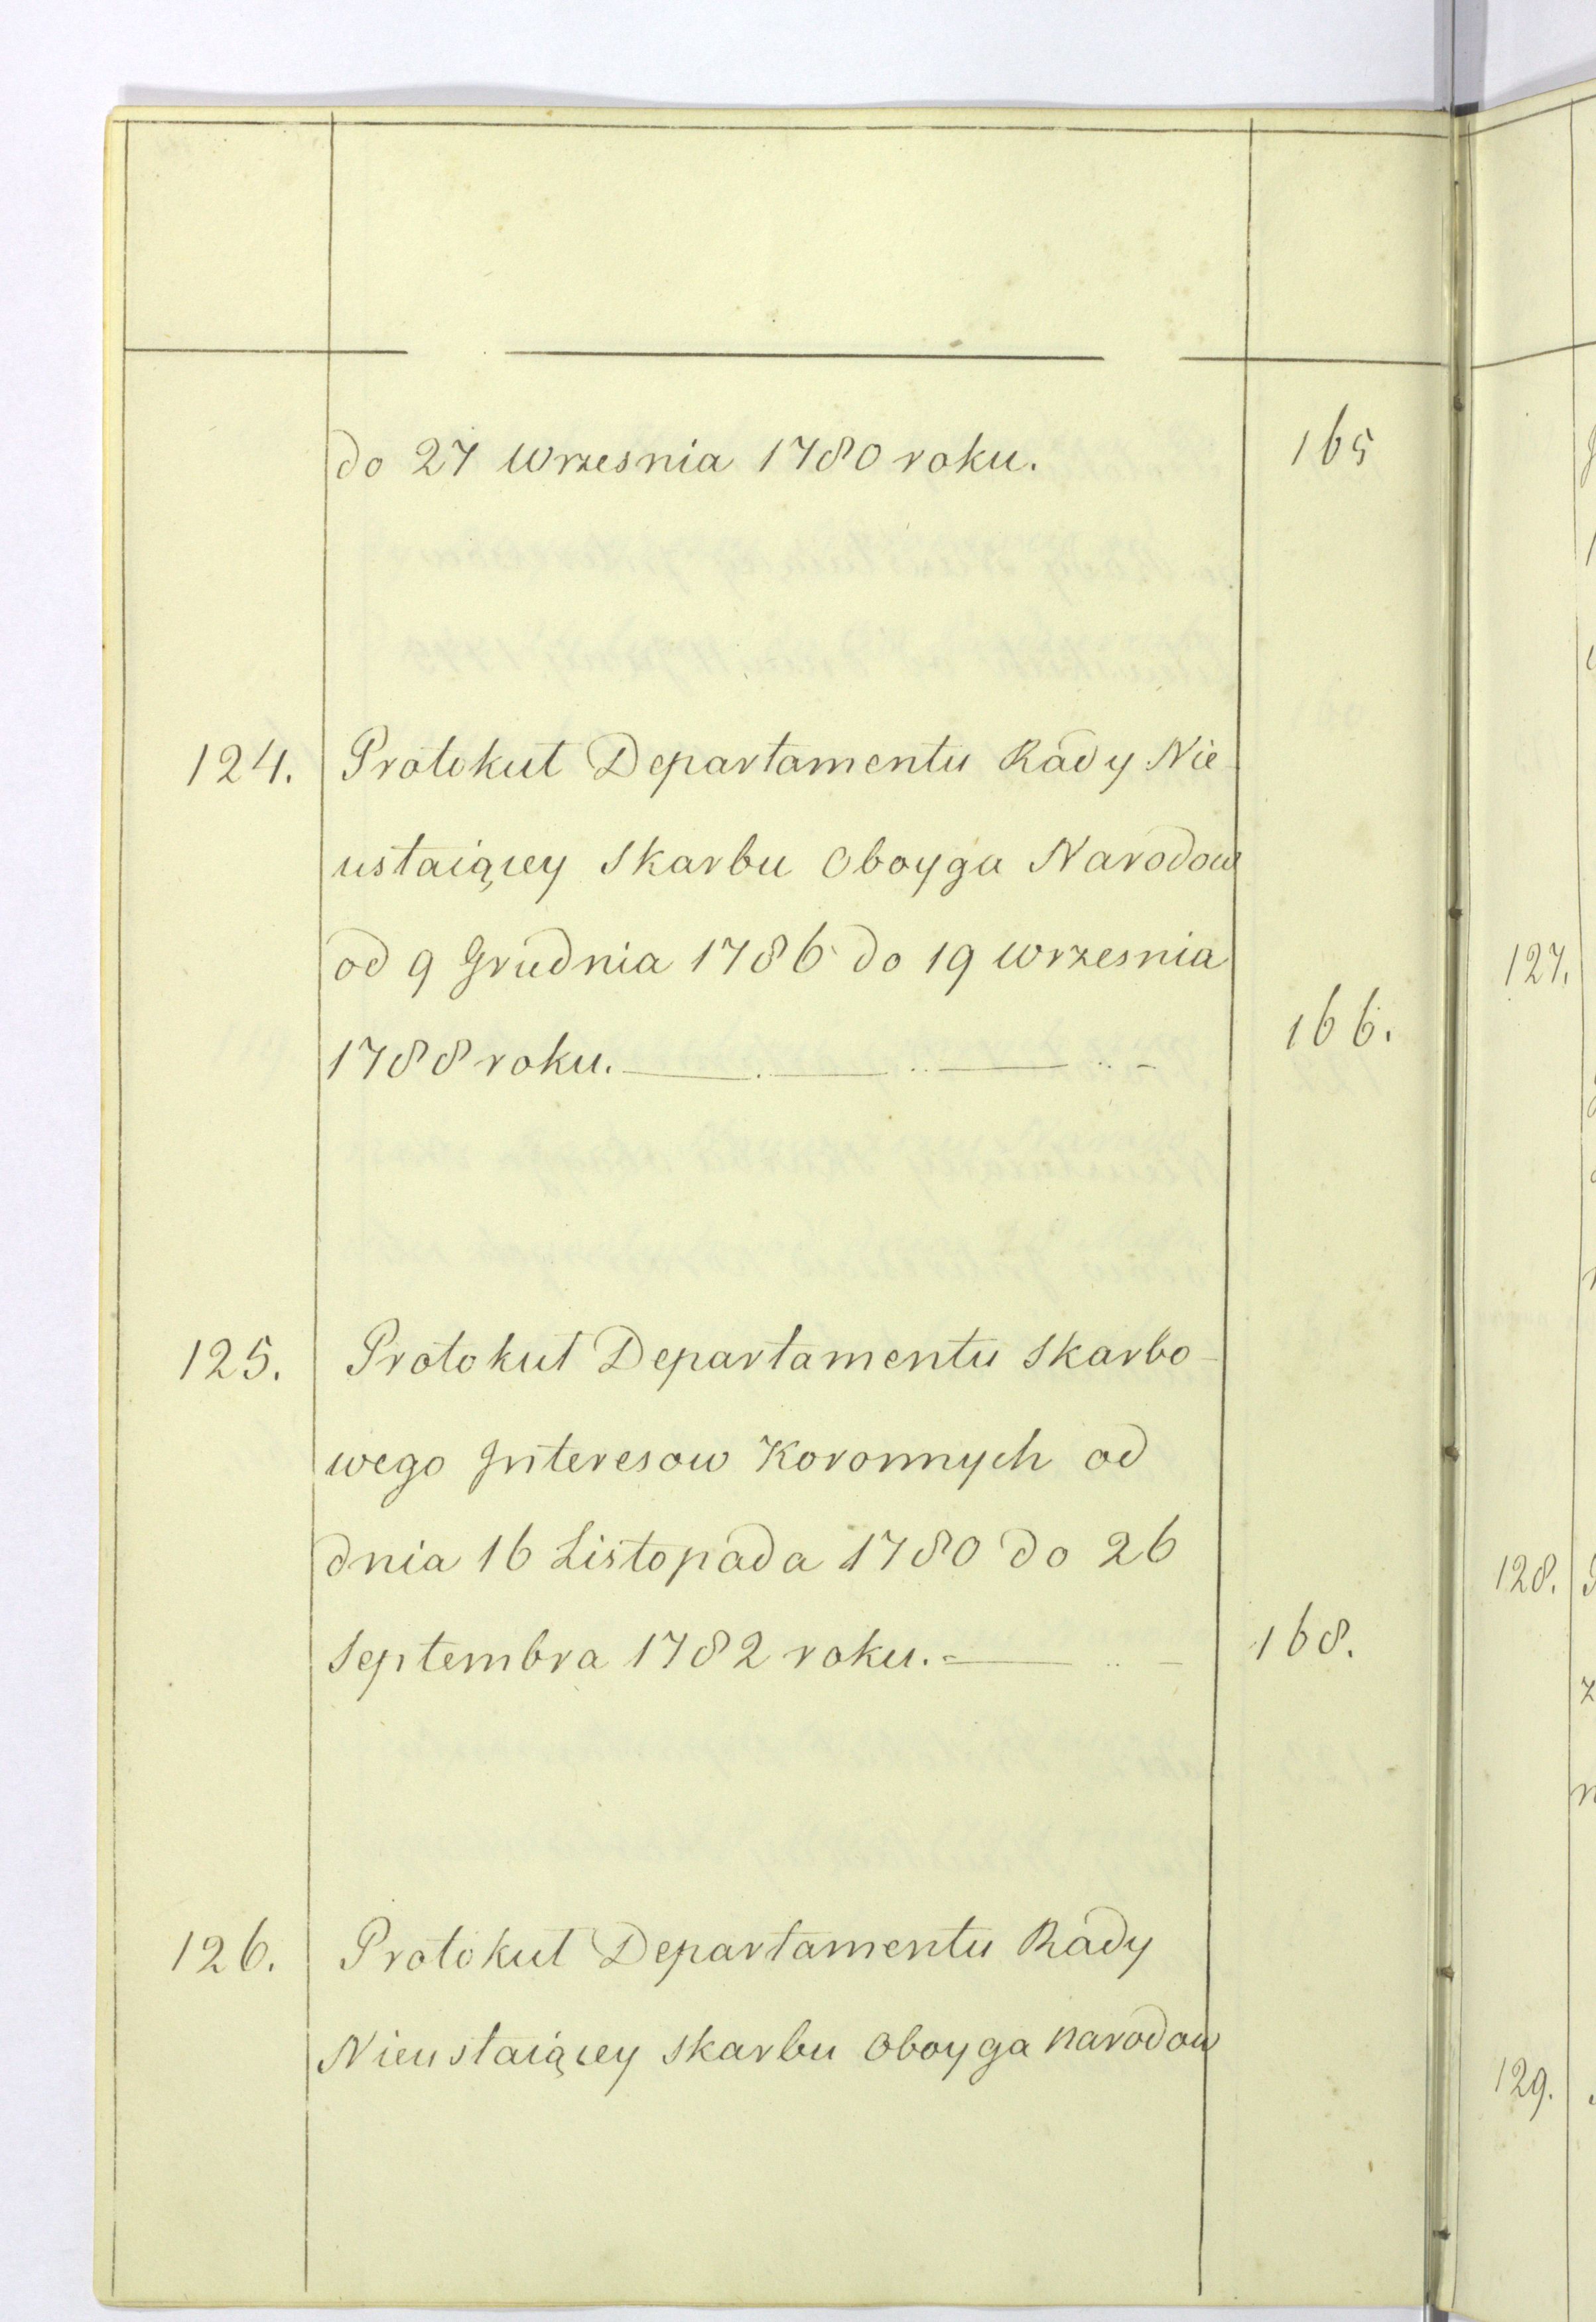 do 27 Wrzesnia 1780 roku. 165
124. Protokuł Departamentu Rady Nie-
ustaiącey Skarbu Oboyga Narodow
od 9 Grudnia 1786 do 19 Wrzesnia
1788 roku. 166.
125. Protokuł Departamentu Skarbo-
wego Interesow Koronnych od
dnia 16 Listopada 1780 do 26
Septembra 1782 roku. 168.
126. Protokuł Departamentu Rady
Nieustaiącey Skarbu Oboyga Narodow
127.
128.
129.